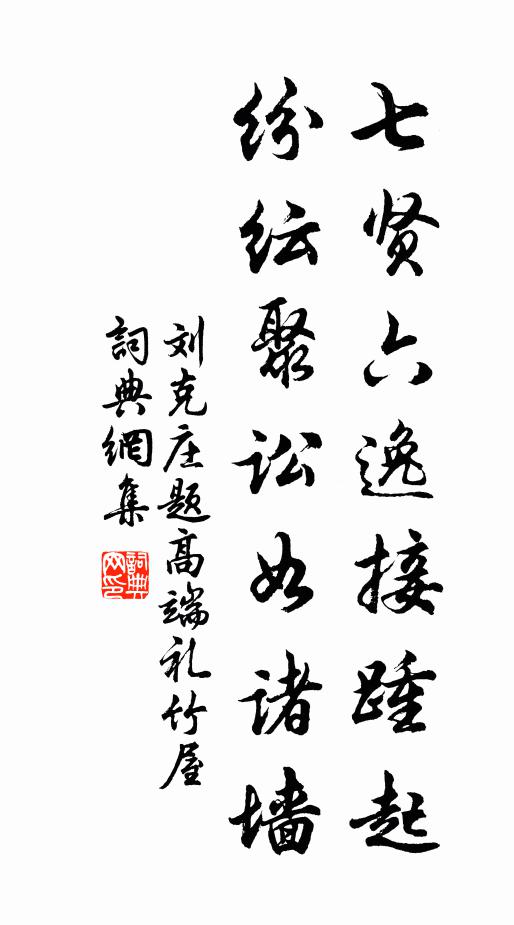 七贤六逸接踵起
纷纭聚讼如诸墙
刘克庄题高端礼竹屋
詞典網集
詞典网印